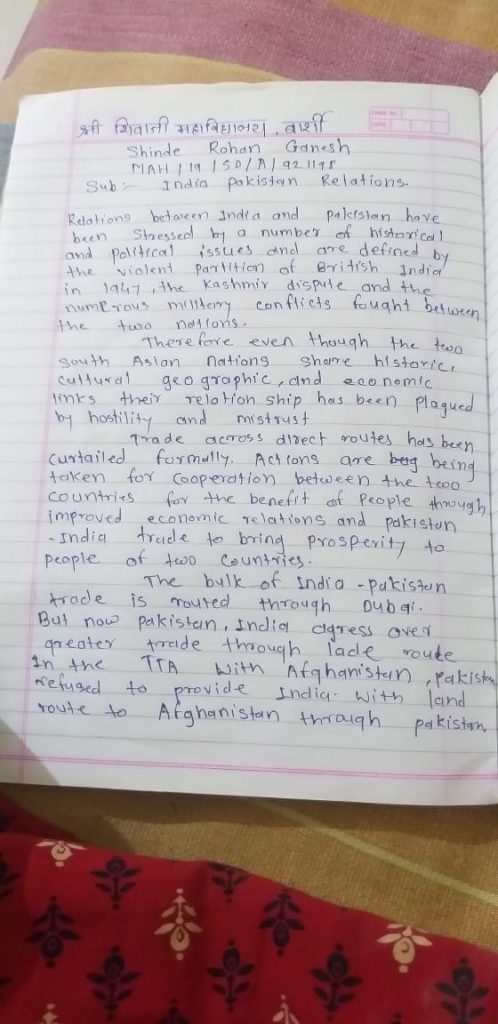 श्री शिवाजी महाविद्यालय, बार्शी
Shinde Rohan Ganesh
MAH / 19 / SD / A / 921198
Sub :- India pakistan Relations.
Relations between India and pakistan have
been Stressed by a number of historical
and political issues and are defined by
the violent partition of British India
in 1947, the Kashmir dispute and the
numerous military conflicts fought between
the two nations.
Therefore even though the two
South Asian nations share historic,
cultural geographic, and economic
links their relation ship has been plagued
by hostility and mistrust
Trade across direct routes has been
curtailed formally. Actions are being
taken for Cooperation between the two
countries for the benefit of people through
improved economic relations and pakistan
-India trade to bring prosperity to
people of two Countries.
The bulk of India -pakistan
trade is routed through Dubai.
But now pakistan, India agress over
greater trade through lade route
In the TTA With Afghanistan, pakistan
refused to provide India. With land
route to Afghanistan through pakistan,